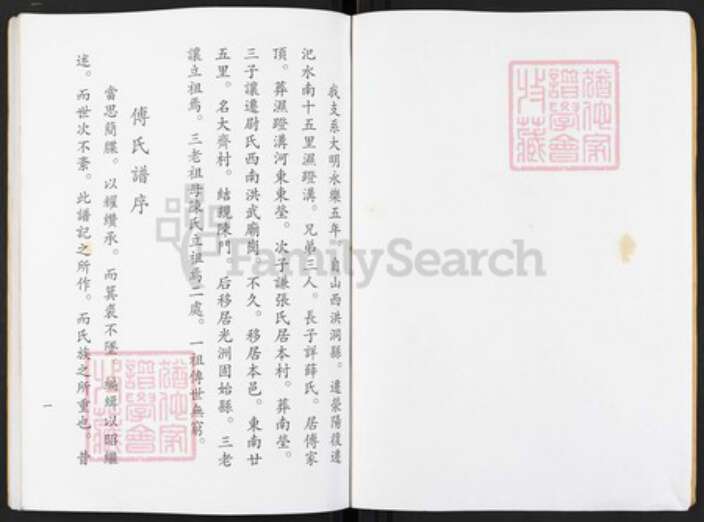 我支系大明永樂五年。自山西洪洞縣。遷滎陽復遷
汜水南十五里濕蹬溝。兄弟三人。長子詳薛氏。居傅家
頂。葬濕蹬溝河東東塋。次子謙張氏居本村。葬南塋。
三子讓遷尉氏西南洪武廟崗。不久。移居本邑。東南廿
五里。名大齊村。結親陳門。后移居光洲固始縣。三老
讓立祖焉。三老祖母陳氏立祖焉二處。一祖傳世無窮。
傅氏譜序
嘗思簡牒。以耀纘承。而箕裘不墜。編緝以昭繼
述。而世次不紊。此譜記之所作。而氏族之所重也。昔
一
猶他家譜學會收藏
猶他家譜學會收藏
FamilySearch